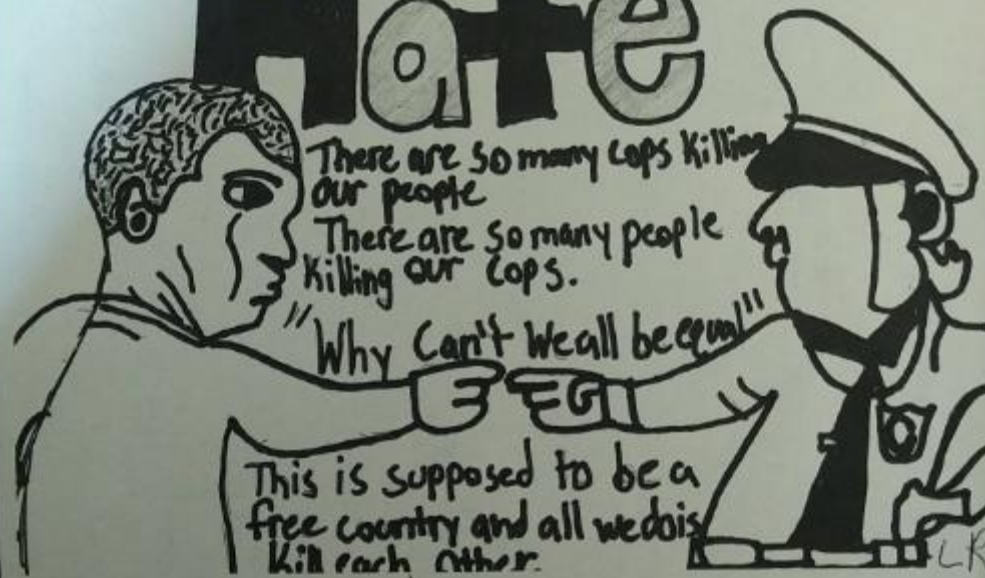 Hate
There are so many cops killing
our people
There are so many people
killing our cops.
"Why Can't We all be equal"
This is supposed to be a
free country and all we do is
kill each other.
LR